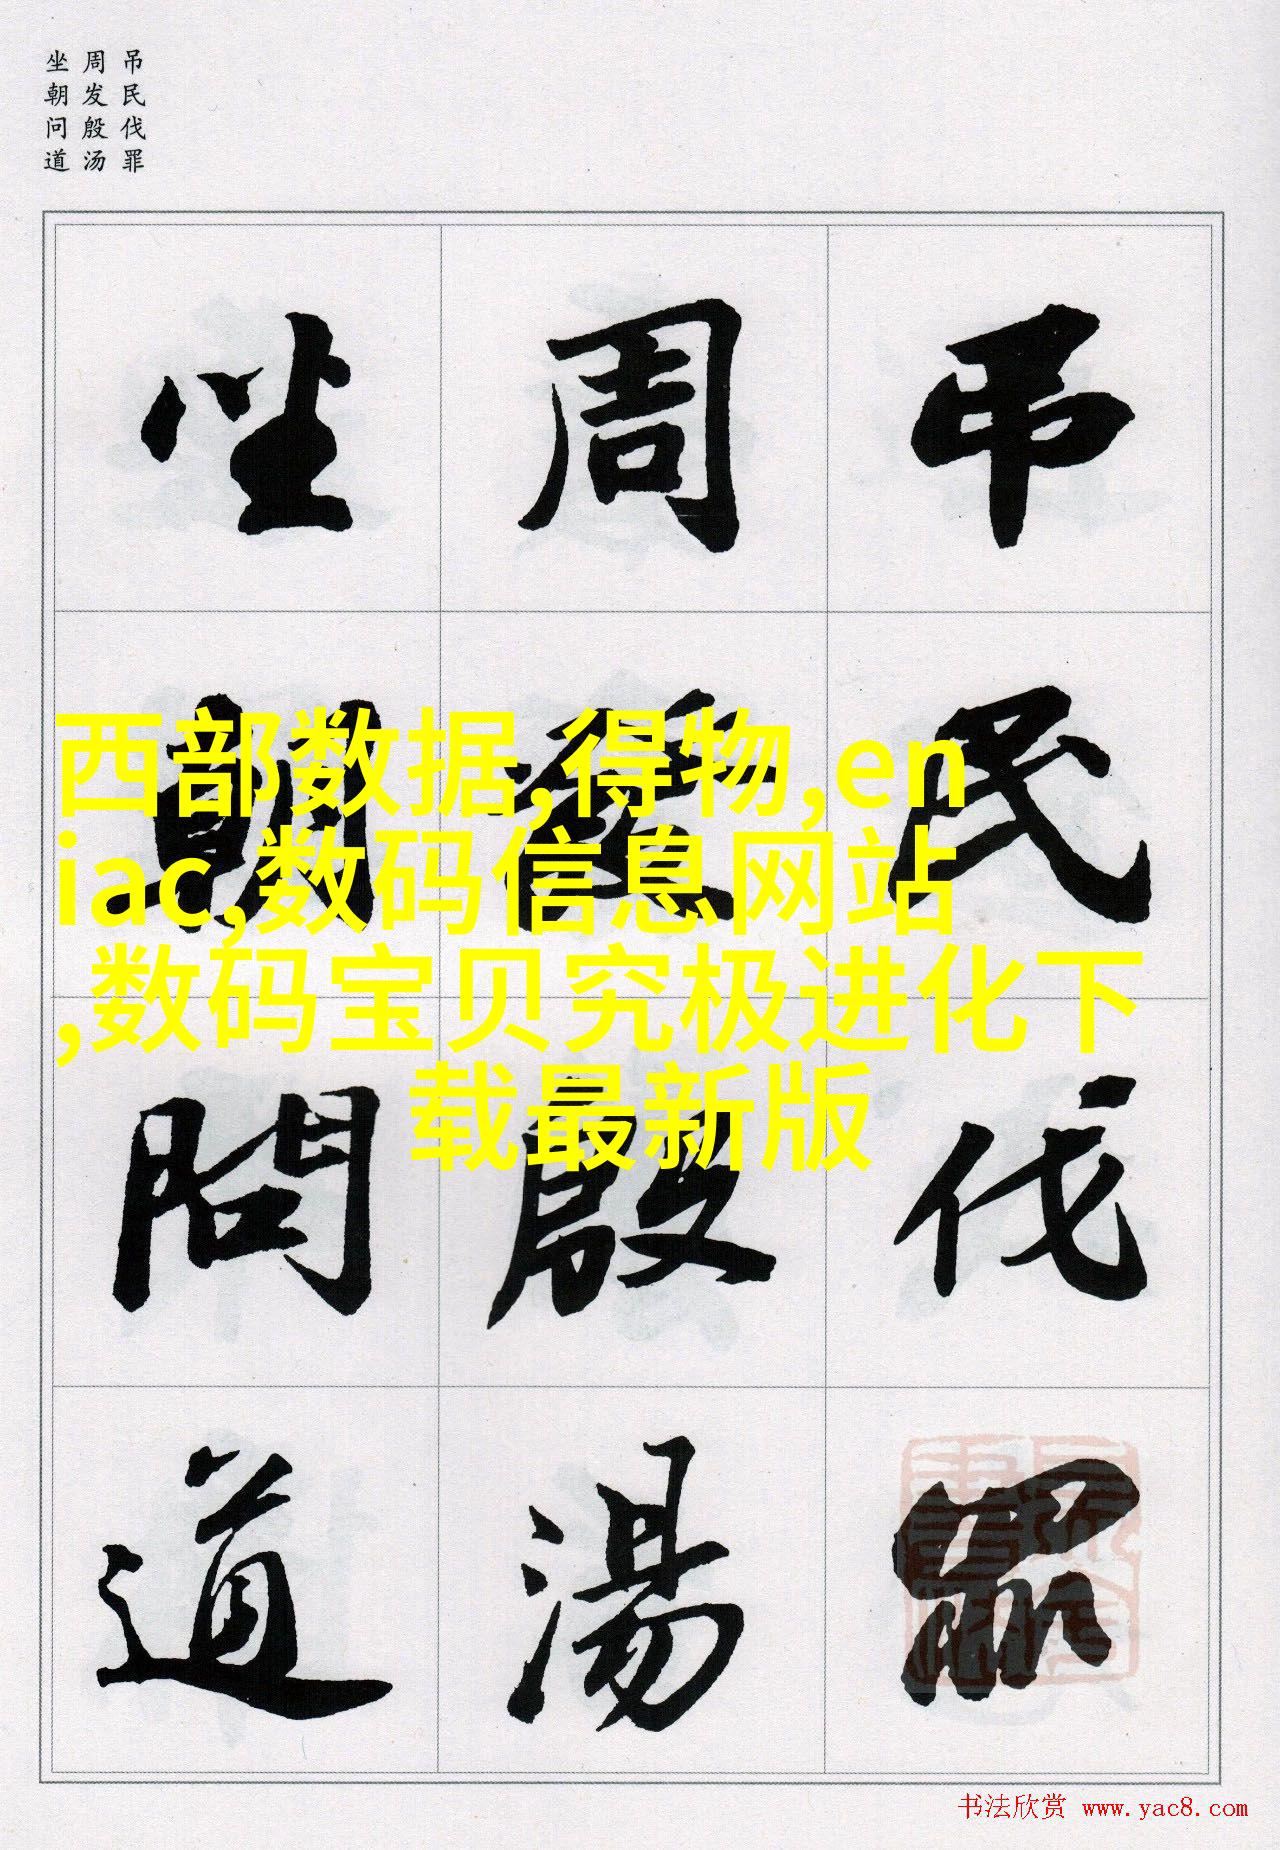 吊民伐罪
周发殷汤
坐朝问道
吊民伐罪
周發殷湯
坐朝問道
西部数据,得物,en
iac,数码信息网站
,数码宝贝究极进化下
载最新版
书法欣赏 www.yac8.com